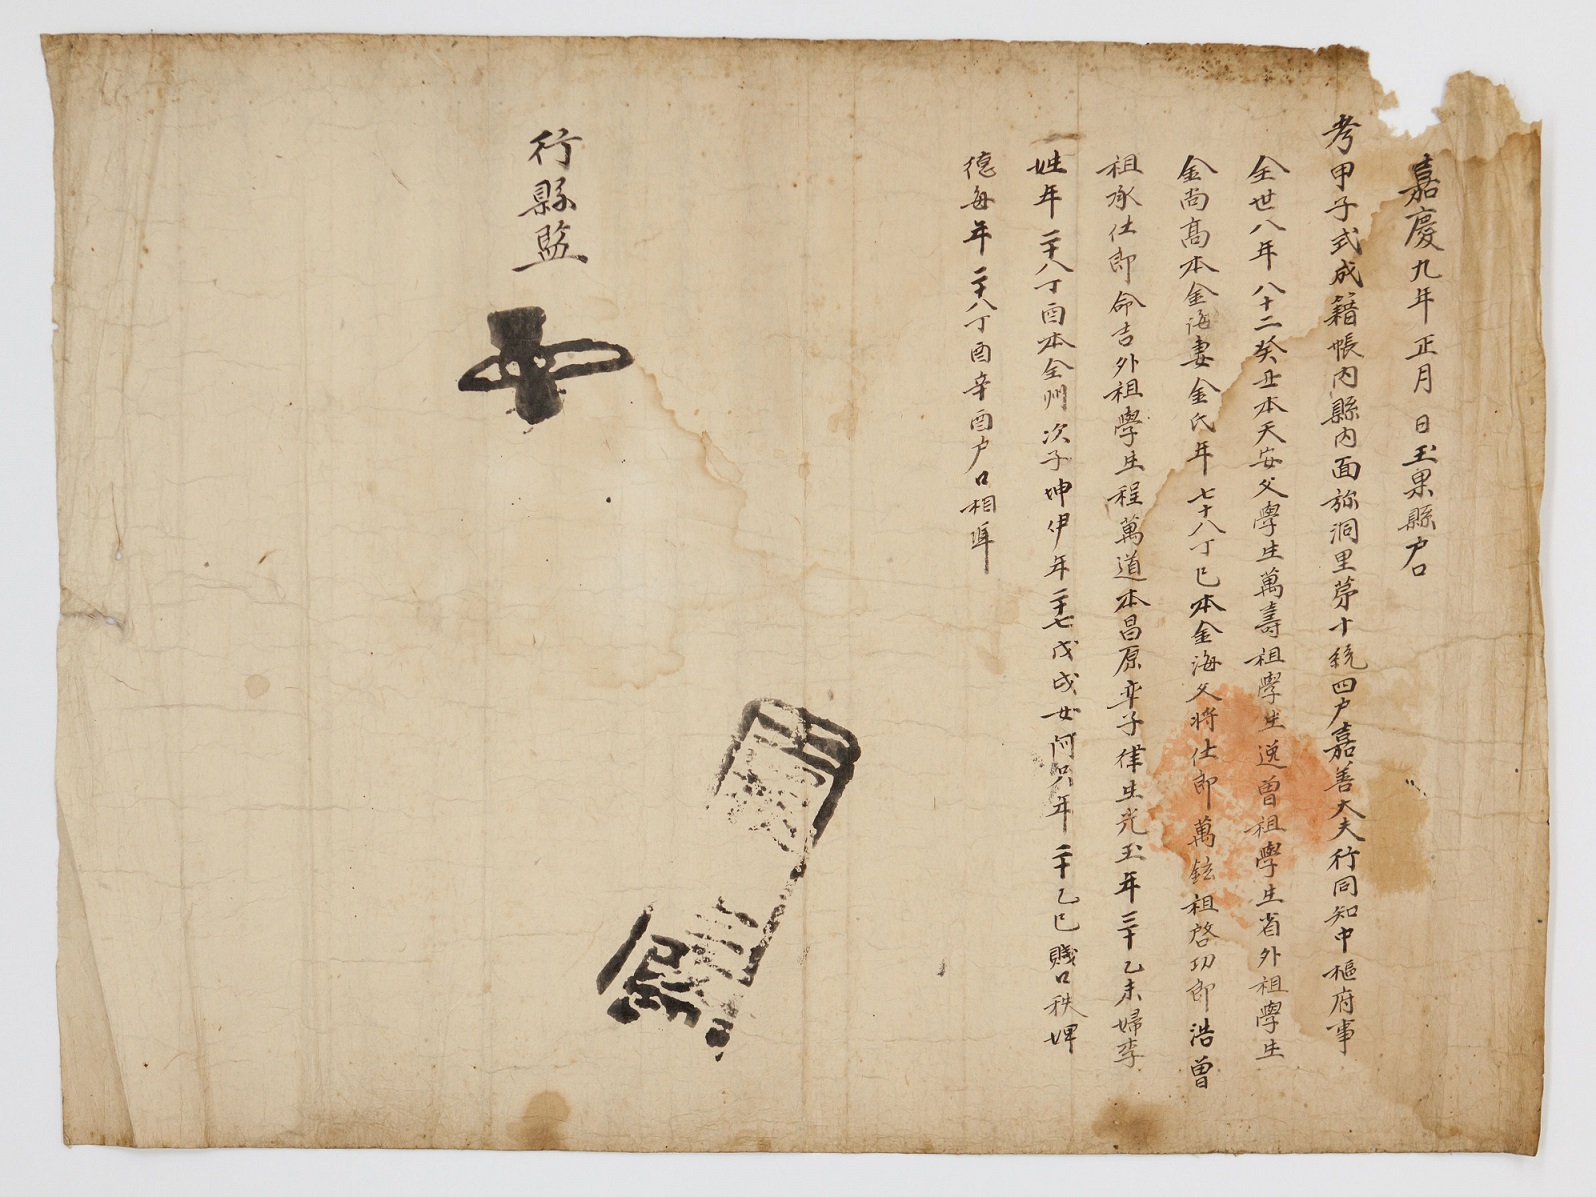 嘉慶九年正月 日玉果縣戶口
考甲子式成籍帳內縣內面旀洞里第十統四戶嘉善大夫行同知中樞府事
全世八年八十二癸丑本天安父學生萬壽祖學生逸曾祖學生省外祖學生
金尚高本金海妻金氏年七十八丁巳本金海父將仕郎萬鉉祖啓功郎浩曾
祖承仕郎命吉外祖學生程萬道本昌原率子律生光玉年三十乙未婦李
姓年二十八丁酉本全州次子坤伊年二十七戊戌女阿只年二十乙巳賤口秩婢
德每年二十八丁酉辛酉戶口相準
行縣監